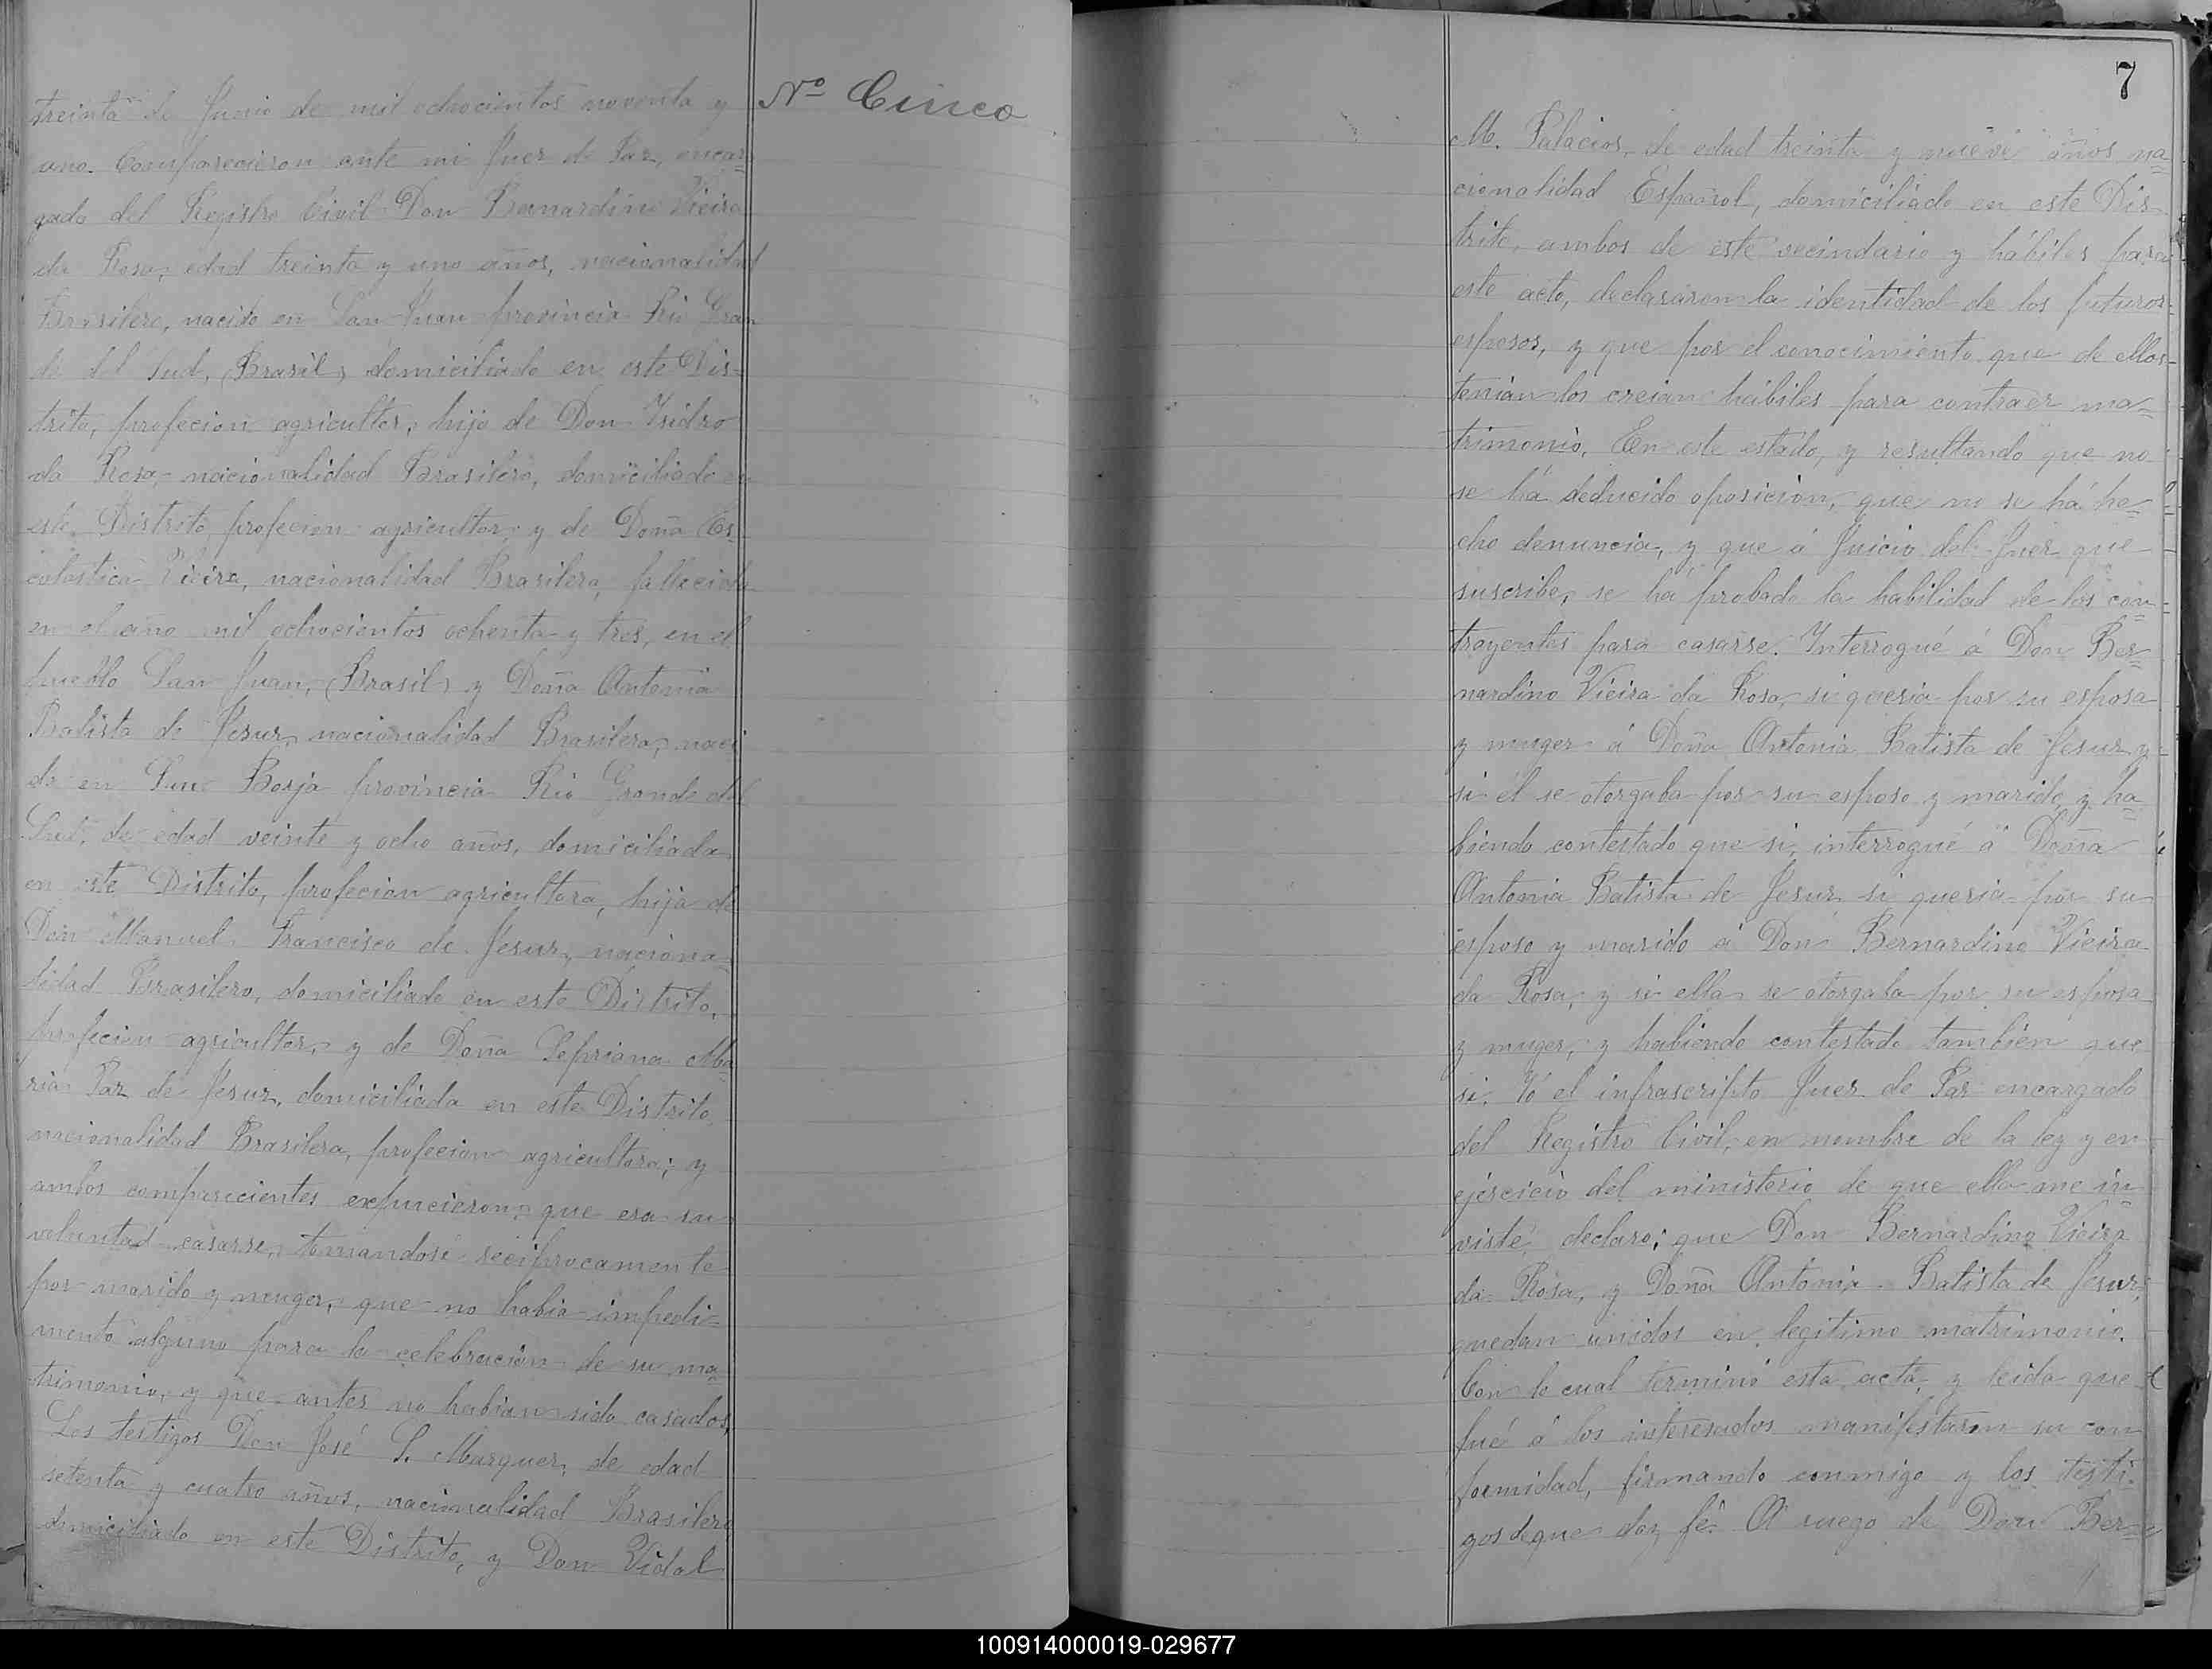 Nº Cinco
treinta de Junio de mil ochocientos noventa y
uno. Comparecieron ante mi Juez de Paz, encar=
gado del Registro Civil Don Bernardino Vieira
da Rosa, edad treinta y uno años, nacionalidad
Brasilero, nacido en San Juan provincia Rio Gran
de del Sud, (Brasil) domiciliado en este Dis=
trito, profecion agricultor, hijo de Don Isidro
da Rosa, nacionalidad Brasilero, domiciliado en
este Distrito profecion agricultor y de Doña Es=
colastica Vieira, nacionalidad Brasilera, fallecida
en el año mil ochocientos ochenta y tres, en el
pueblo San Juan, (Brasil) y Doña Antonia
Batista de Jesuz, nacionalidad Brasilera, naci
da en San Borja provincia Rio Grande del
Sud, de edad veinte y ocho años, domiciliada
en este Distrito, profecion agricultora, hija de
Don Manuel Francisco de Jesuz, naciona=
lidad Brasilero, domiciliado en este Distrito,
profecion agricultor, y de Doña Sepriana Ma=
ria Paz de Jesuz, domiciliada en este Distrito,
nacionalidad Brasilera, profecion agricultora; y
ambos comparecientes expucieron: que era su
voluntad casarse, tomandose reciprocamente
por marido y muger, que no habia impedi=
mento alguno para la celebracion de su ma=
trimonio, y que antes no habian sido casados.
Los testigos Don José S. Marquez, de edad
setenta y cuatro años, nacionalidad Brasilero
domiciliado en este Distrito, y Don Vidal
7
M. Palacios, de edad treinta y nueve años na=
cionalidad Español, domiciliado en este Dis
trito, ambos de este vecindario y hábiles para
este acto, declararon la identidad de los futuros=
esposos, y que por el conocimiento que de ellos=
tenian los creian hábiles para contraer ma=
trimonio. En este estado, y resultando que no
se há deducido oposicion, que no se há he=
cho denuncia, y que á Juicio del Juez que
suscribe, se há probado la habilidad de los con=
trayentes para casarse. Interrogué á Don Ber=
nardino Vieira da Rosa, si queria por su esposa
y muger á Doña Antonia Batista de Jesuz y
si él se otorgaba por su esposo y marido, y ha=
biendo contestado que si, interrogué á Doña
Antonia Batista de Jesuz si queria por su
esposo y marido á Don Bernardino Vieira
da Rosa, y si ella se otorgaba por su esposa
y muger, y habiendo contestado tambien que
si. Yó el infrascripto Juez de Paz encargado
del Registro Civil, en nombre de la ley y en
ejercicio del ministerio de que ella me in=
visté, declaro: que Don Bernardino Vieira
da Rosa, y Doña Antonia Batista de Jesuz,
quedan unidos en legitimo matrimonio.
Con lo cual terminó esta acta, y leida que
fué á los interesados manifestaron su con
formidad, firmando conmigo y los testi=
gos de que doy fé. A ruego de Don Ber=
100914000019-029677